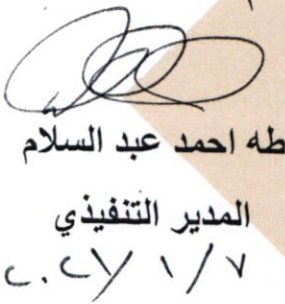 طه احمد عبد السلام
المدير التنفيذي
٢٠٢٧/١/٧